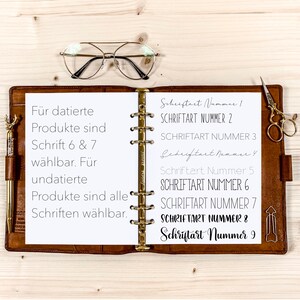 Für datierte
Produkte sind
Schrift 6 & 7
wählbar. Für
undatierte
Produkte sind alle
Schriften wählbar.
Schriftart Nummer 1
SCHRIFTART NUMMER 2
SCHRIFTART NUMMER 3
Schriftart Nummer 4
Schriftart Nummer 5
SCHRIFTART NUMMER 6
SCHRIFTART NUMMER 7
SCHRIFTART NUMMER 8
Schriftart Nummer 9